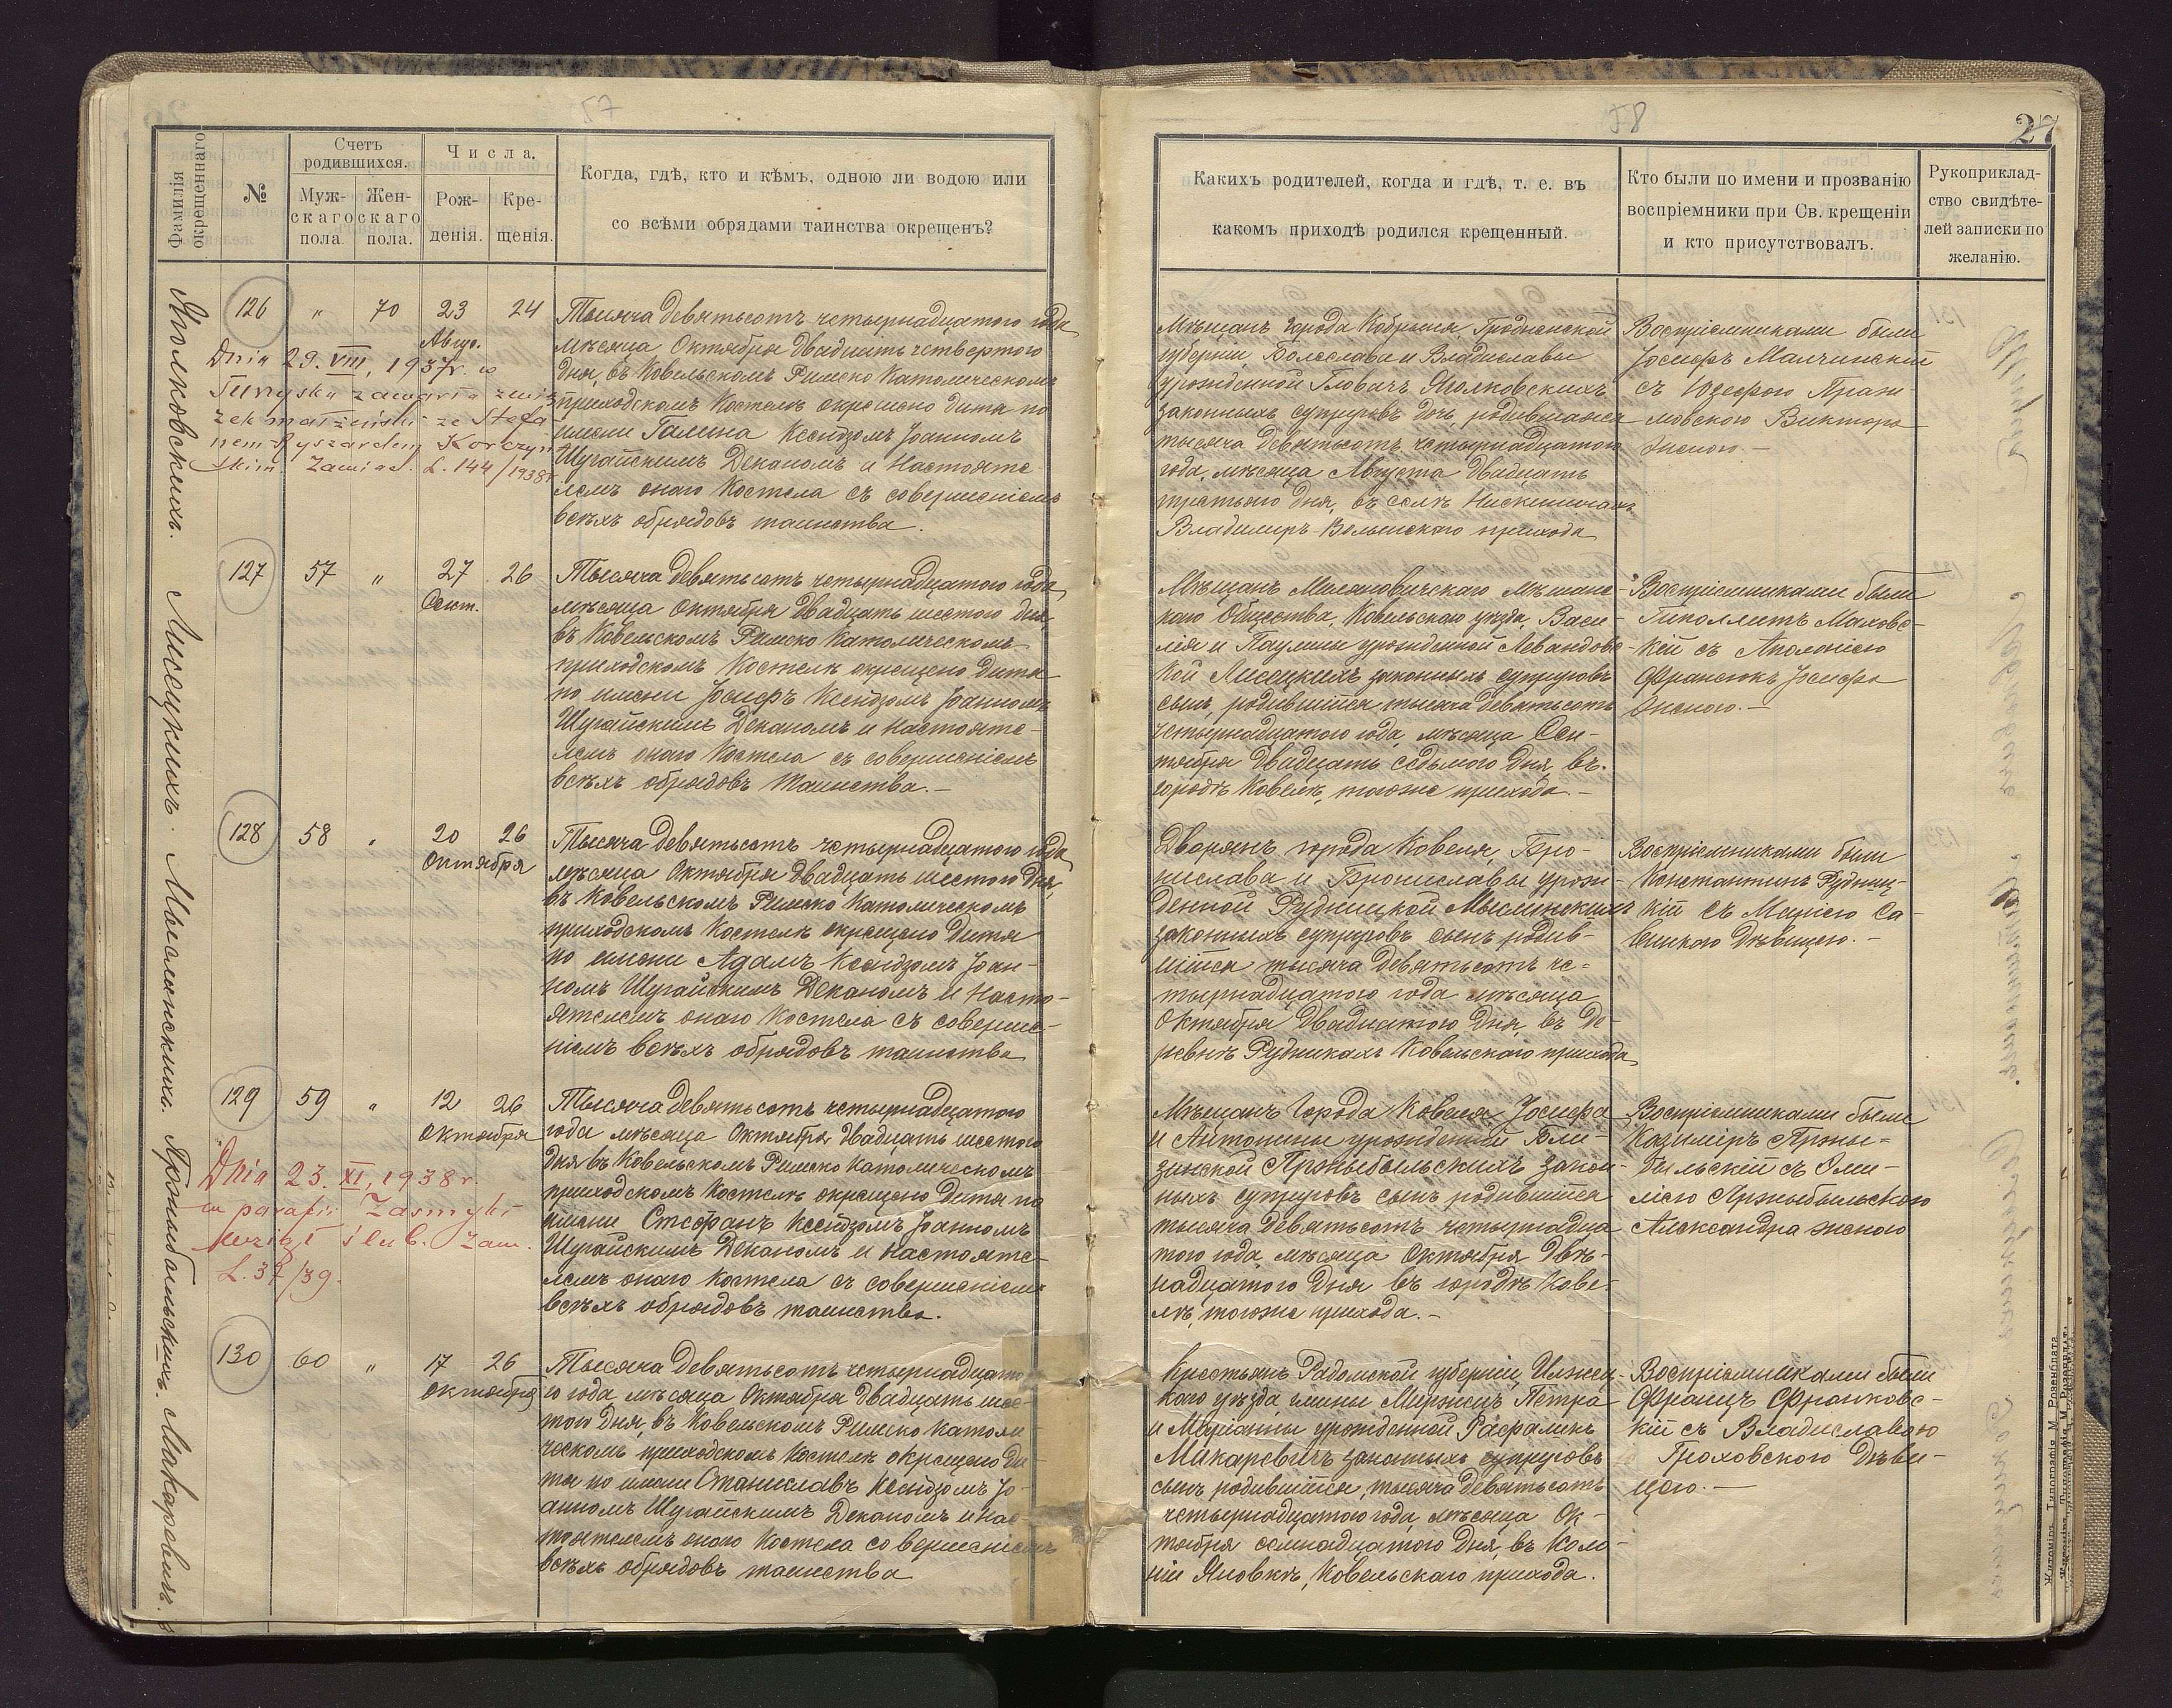 57
Фамилія
окрещеннаго
№
Счетъ
родившихся.
Муж-
скаго
пола.
Жен-
скаго
пола.
Числа.
Рож-
денія.
Кре-
щенія.
Когда, гдѣ, кто и кѣмъ, одною ли водою или
со всѣми обрядами таинства окрещенъ?
126 " 70 23 24
Авгус.
Dnia 29. VIII, 1937r. w
Turzysku zawarła zwią-
zek małżeński ze Stefa-
nem Ryszardem Korczyń-
skim. Zawiad. L. 144/1938r.
Тысяча девятьсотъ четырнадцатого года
мѣсяца Октября двадцать четвертого
дня, въ Ковельскомъ Римско Католическомъ
приходскомъ Костелѣ окрещено дитя по
имени Галина Ксендзомъ Іоанномъ
Шугайскимъ Деканомъ и Настояте-
лемъ онаго Костела съ совершеніемъ
всѣхъ обрядовъ таинства.
127 57 " 27 26
Сент.
Лисецкихъ.
Тысяча девятьсотъ четырнадцатого года
мѣсяца Октября двадцать шестого дня,
въ Ковельскомъ Римско Католическомъ
приходскомъ Костелѣ окрещено дитя
по имени Іосифъ Ксендзомъ Іоанномъ
Шугайскимъ Деканомъ и Настояте-
лемъ онаго Костела съ совершеніемъ
всѣхъ обрядовъ таинства.-
128 58 " 20 26
Октября
Мыслинскихъ.
Тысяча девятьсотъ четырнадцатого года
мѣсяца Октября двадцать шестого дня,
въ Ковельскомъ Римско Католическомъ
приходскомъ Костелѣ окрещено дитя
по имени Адамъ Ксендзомъ Іоан-
номъ Шугайскимъ Деканомъ и Насто-
ятелемъ онаго Костела съ соверше-
ніемъ всѣхъ обрядовъ таинства
129 59 " 12 26
Октября
Dnia 23. XI, 1938 r.
w parafii Zasmyki
wziął ślub. Zaw.
L. 37/39.
Тысяча девятьсотъ четырнадцатого
года мѣсяца Октября двадцать шестого
дня въ Ковельскомъ Римско Католическомъ
приходскомъ Костелѣ окрещено дитя по
имени Стефанъ Ксендзомъ Іоанномъ
Шугайскимъ Деканомъ и Настояте-
лемъ онаго Костела съ совершеніемъ
всѣхъ обрядовъ таинства.
130 60 " 17 26
Октября
Макаревичъ.
Тысяча девятьсотъ четырнадцато-
го года мѣсяца Октября двадцать шес-
того дня, въ Ковельскомъ Римско Католи-
ческомъ приходскомъ Костелѣ окрещено ди-
тя по имени Станиславъ Ксендзомъ Іо-
анномъ Шугайскимъ Деканомъ и Нас-
тоятелемъ онаго Костела совершеніемъ
всѣхъ обрядовъ таинства
58
27
Какихъ родителей, когда и гдѣ, т. е. въ
какомъ приходѣ родился крещенный.
Кто были по имени и прозванію
воспріемники при Св. крещеніи
и кто присутствовалъ.
Рукоприклад-
ство свидѣте-
лей записки по
желанію.
Мѣщанъ города Кобрыня, Гродненской
губерніи, Болеслава и Владиславы
урожденной Гловачъ Яголковскихъ
законныхъ супруговъ дочь, родившаяся
тысяча девятьсотъ четырнадцатого
года, мѣсяца Августа двадцать
третьяго дня, въ селѣ Нискиничахъ
Владимиръ Волынскаго прихода
Воспріемниками были
Іосифъ Малчинскій
съ Юзефою
Виктора
женою.-
Мѣщанъ Мѣщанс-
каго Общества, Ковельскаго уѣзда, Васи-
лія и Паулины урожденной Левандовс-
кой Лисецкихъ законныхъ супруговъ
сынъ, родившійся тысяча девятьсотъ
четырнадцатого года, мѣсяца Сен-
тября двадцать седьмого дня, въ
городѣ Ковелѣ, тогоже прихода.-
Воспріемниками были
Гиполлитъ Маховс-
кій съ Аполоніею
Францюкъ Іосифа
женою.-
Дворянъ города Ковеля, Бро-
нислава и Брониславы урож-
денной Рудницкой Мыслинскихъ
законныхъ супруговъ сынъ родив-
шійся тысяча девятьсотъ че-
тырнадцатого года мѣсяца
Октября двадцатого дня, въ де-
ревнѣ Рудникахъ Ковельскаго прихода
Воспріемниками были
Константинъ Рудниц-
кій съ Маріею Са-
вицкою дѣвицею.-
Мѣщанъ города Ковеля, Іосифа
и Антонины урожденной Бли-
зинской Пржыбыльскихъ закон-
ныхъ супруговъ сынъ родившійся
тысяча девятьсотъ четырнадца-
того года, мѣсяца Октября двѣ-
надцатого дня въ городѣ Кове-
лѣ, тогоже прихода.-
Воспріемниками были
Казиміръ Пржы-
быльскій съ Эми-
ліею Пржыбыльскою
Александра женою
Крестьянъ Радомской губерніи, Илжец-
каго уѣзда гмины Миржецъ Петра
и Маріанны урожденной
Макаревичъ законныхъ супруговъ
сынъ родившійся, тысяча девятьсотъ
четырнадцатого года, мѣсяца Ок-
тября семнадцатого дня, въ коло-
ніи Яновкѣ, Ковельскаго прихода.
Воспріемниками были
Францъ Франковс-
кій съ Владиславою
Гроховскою дѣви-
цею.-
Житоміръ. Типографія М. Розенблата